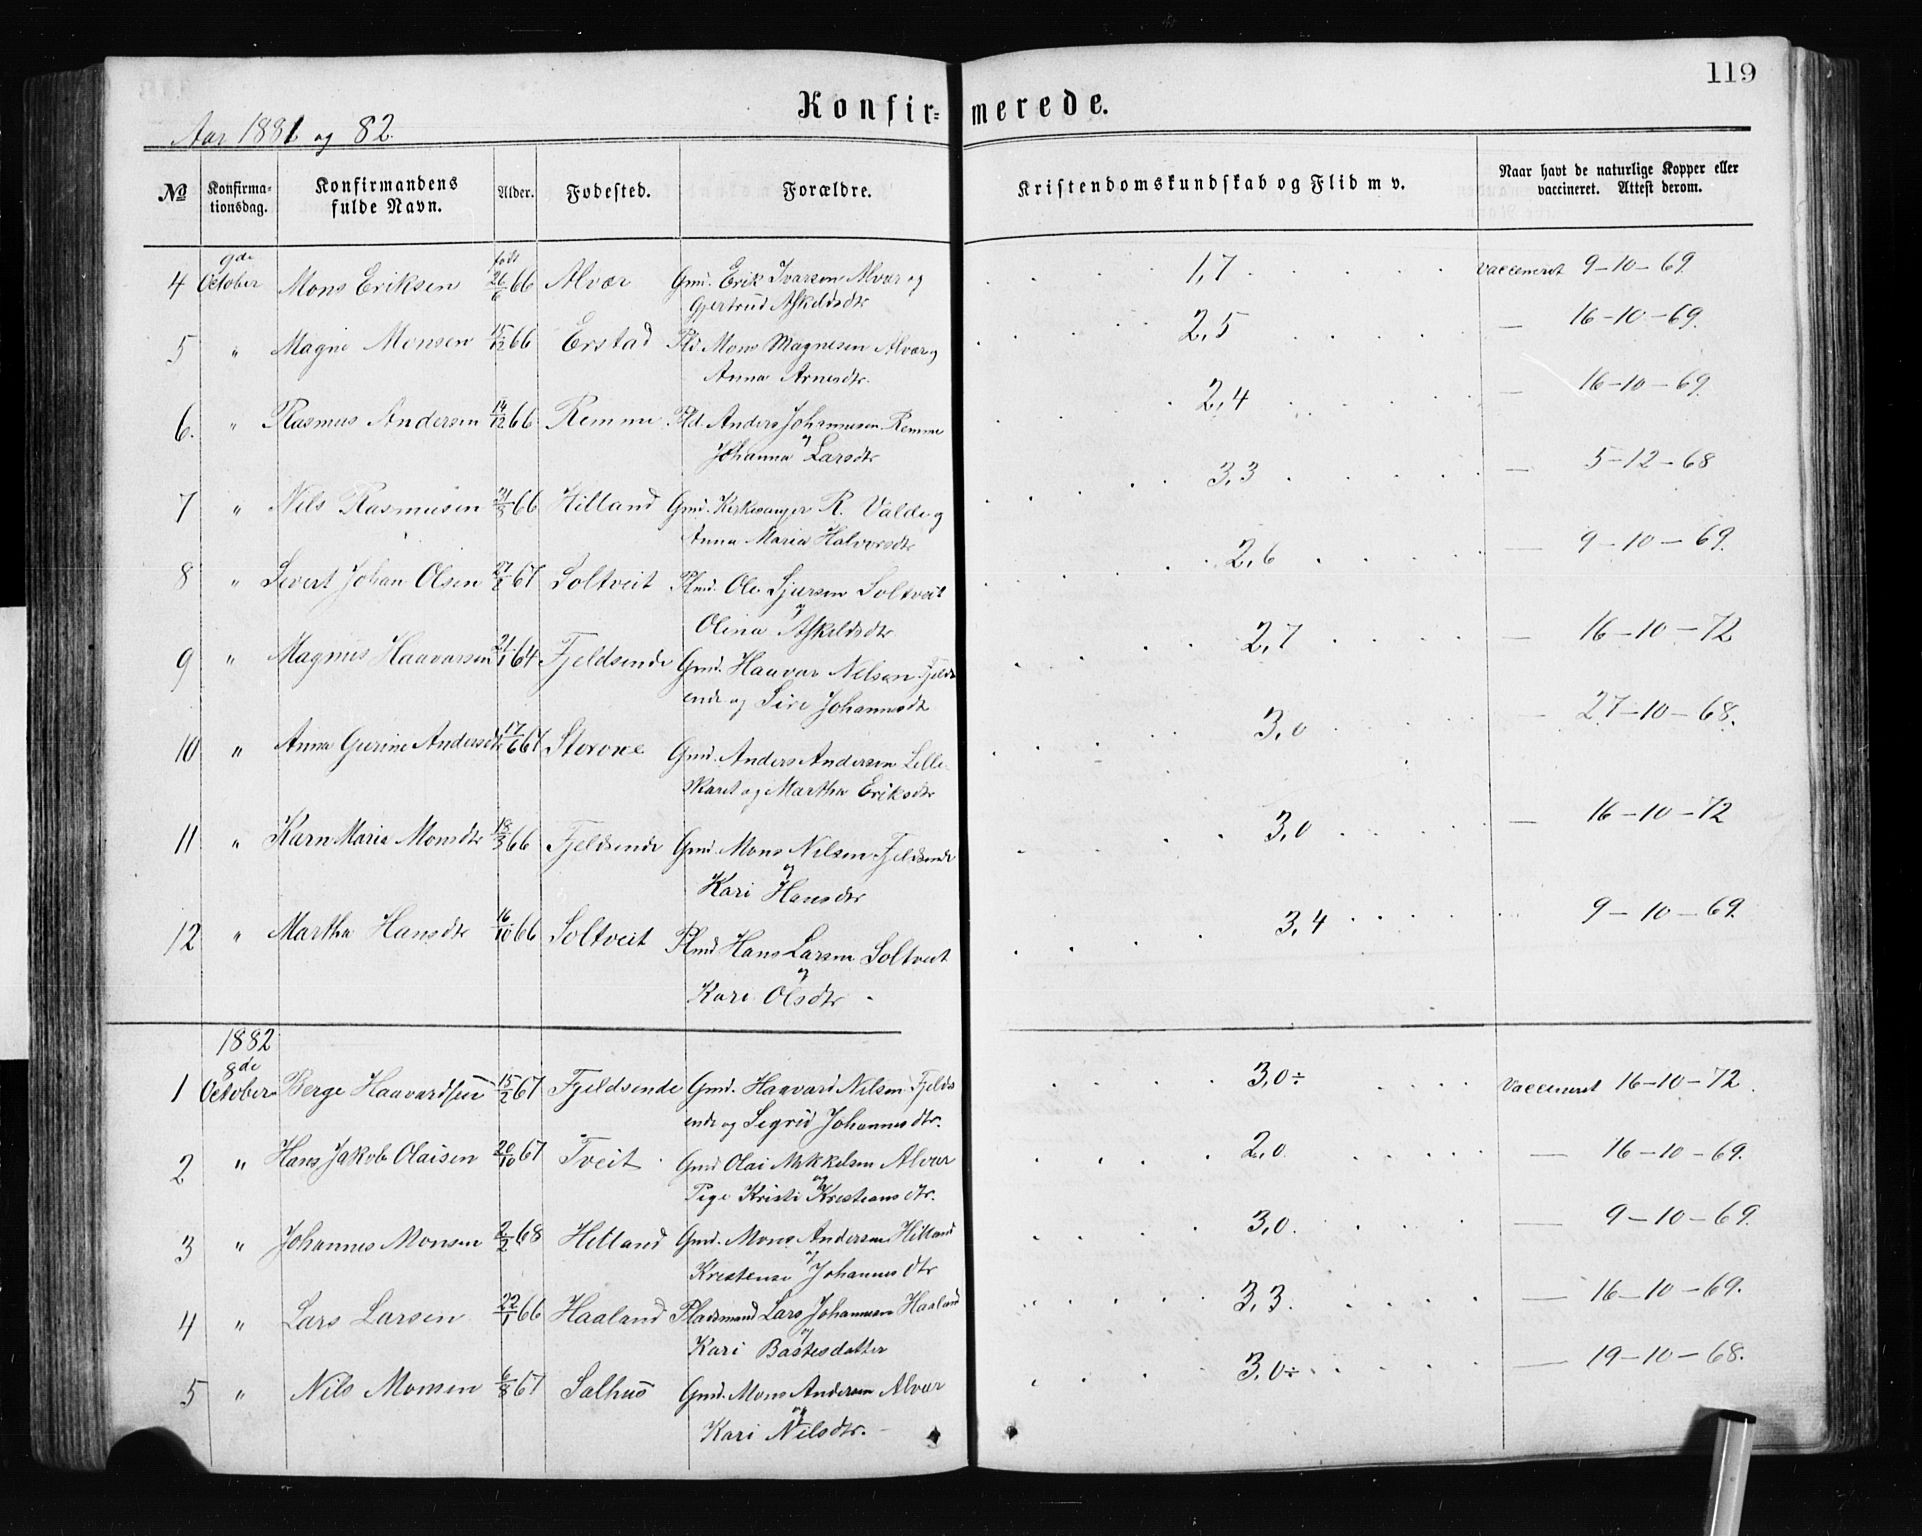 119
Konfirmerede.
Aar 1881 og 82.
№ Konfirma- Konfirmandens Alder. Fødested. Forældre. Kristendomskundskab og Flid m v. Naar havt de naturlige Kopper eller
tionsdag. fulde Navn. vaccineret. Attest derom.
9de født
4 October Mons Eriksen 26/6 66 Alvær Gmd. Erik Ivarsen Alvær og 1,7 vaccineret 9-10-69.
Gjertrud Askeldsdtr
5 " Magne Monsen 15/12 66 Erstad Pld. Mons Magnesen Alvær og 2,5 — 16-10-69.
Anna Arnesdtr.
6. " Rasmus Andersen 14/12 66 Remme Pld. Anders Johannesen Remme 2,4 — 16-10-69.
og
Johanna Larsdtr
7 " Nils Rasmusen 66 Hilland Gmd. Kirkesanger R. Valde og 3,3 — 5-12-68
Anna Maria Halvorsdtr
8 " Sivert Johan Olsen 27/2 67 Soltveit Plmd. Ole Sjursen Soltveit 2,6 — 9-10-69.
og
Olina Askeldsdtr
9 " Magnus Haavarsen 21/1 64 Fjeldsende Gmd. Haavar Nilsen Fjelds 2,7 — 16-10-72
ende og Siri Johannesdtr
10 " Anna Gurine Andersdtr 17/6 67 Storoxe Gmd. Anders Andersen Lille- 3,0 — 27-10-68.
skaret og Martha Eriksdtr
11 " Karn Maria Monsdtr 18/3 66 Fjeldsende Gmd. Mons Nilsen Fjeldsende 3,0 — 16-10-72
og
Kari Hansdtr
12 " Martha Hansdtr 16/10 66 Soltveit Plmd Hans Larsen Soltveit 3,4 9-10-69.
og
Kari Olsdtr
1882
8de
1 October Berge Haavardsen 15/2 67 Fjeldsende Gmd. Haavard Nilsen Fjelds 3,0÷ Vaccineret 16-10-72.
ende og Sigrid Johannesdtr.
2 " Hans Jakob Olaisen 20/10 67 Tveit Gmd Olai Mikkelsen Alvær 2,0 — 16-10-69.
og
Pige Kristi Kristiansdtr.
3 " Johannes Monsen 2/2 68 Hilland Gmd. Mons Andersen Hilland 3,0. — 9-10-69.
og
Kristense Johannesdtr
4 " Lars Larsen 22/1 66 Haaland Pladsmand Lars Johannesen Haaland 3,3. — 16-10-69.
og
Kari Bastesdatter
5 " Nils Monsen 6/8 67 Salhus Gmd. Mons Andersen Alvær 3,0÷ — 19-10-68.
og
Kari Nilsdtr.